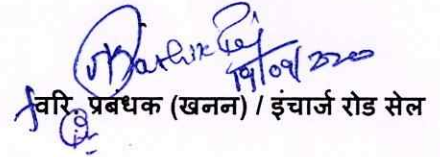 19/09/2020
वरि. प्रबंधक (खनन) / इंचार्ज रोड सेल